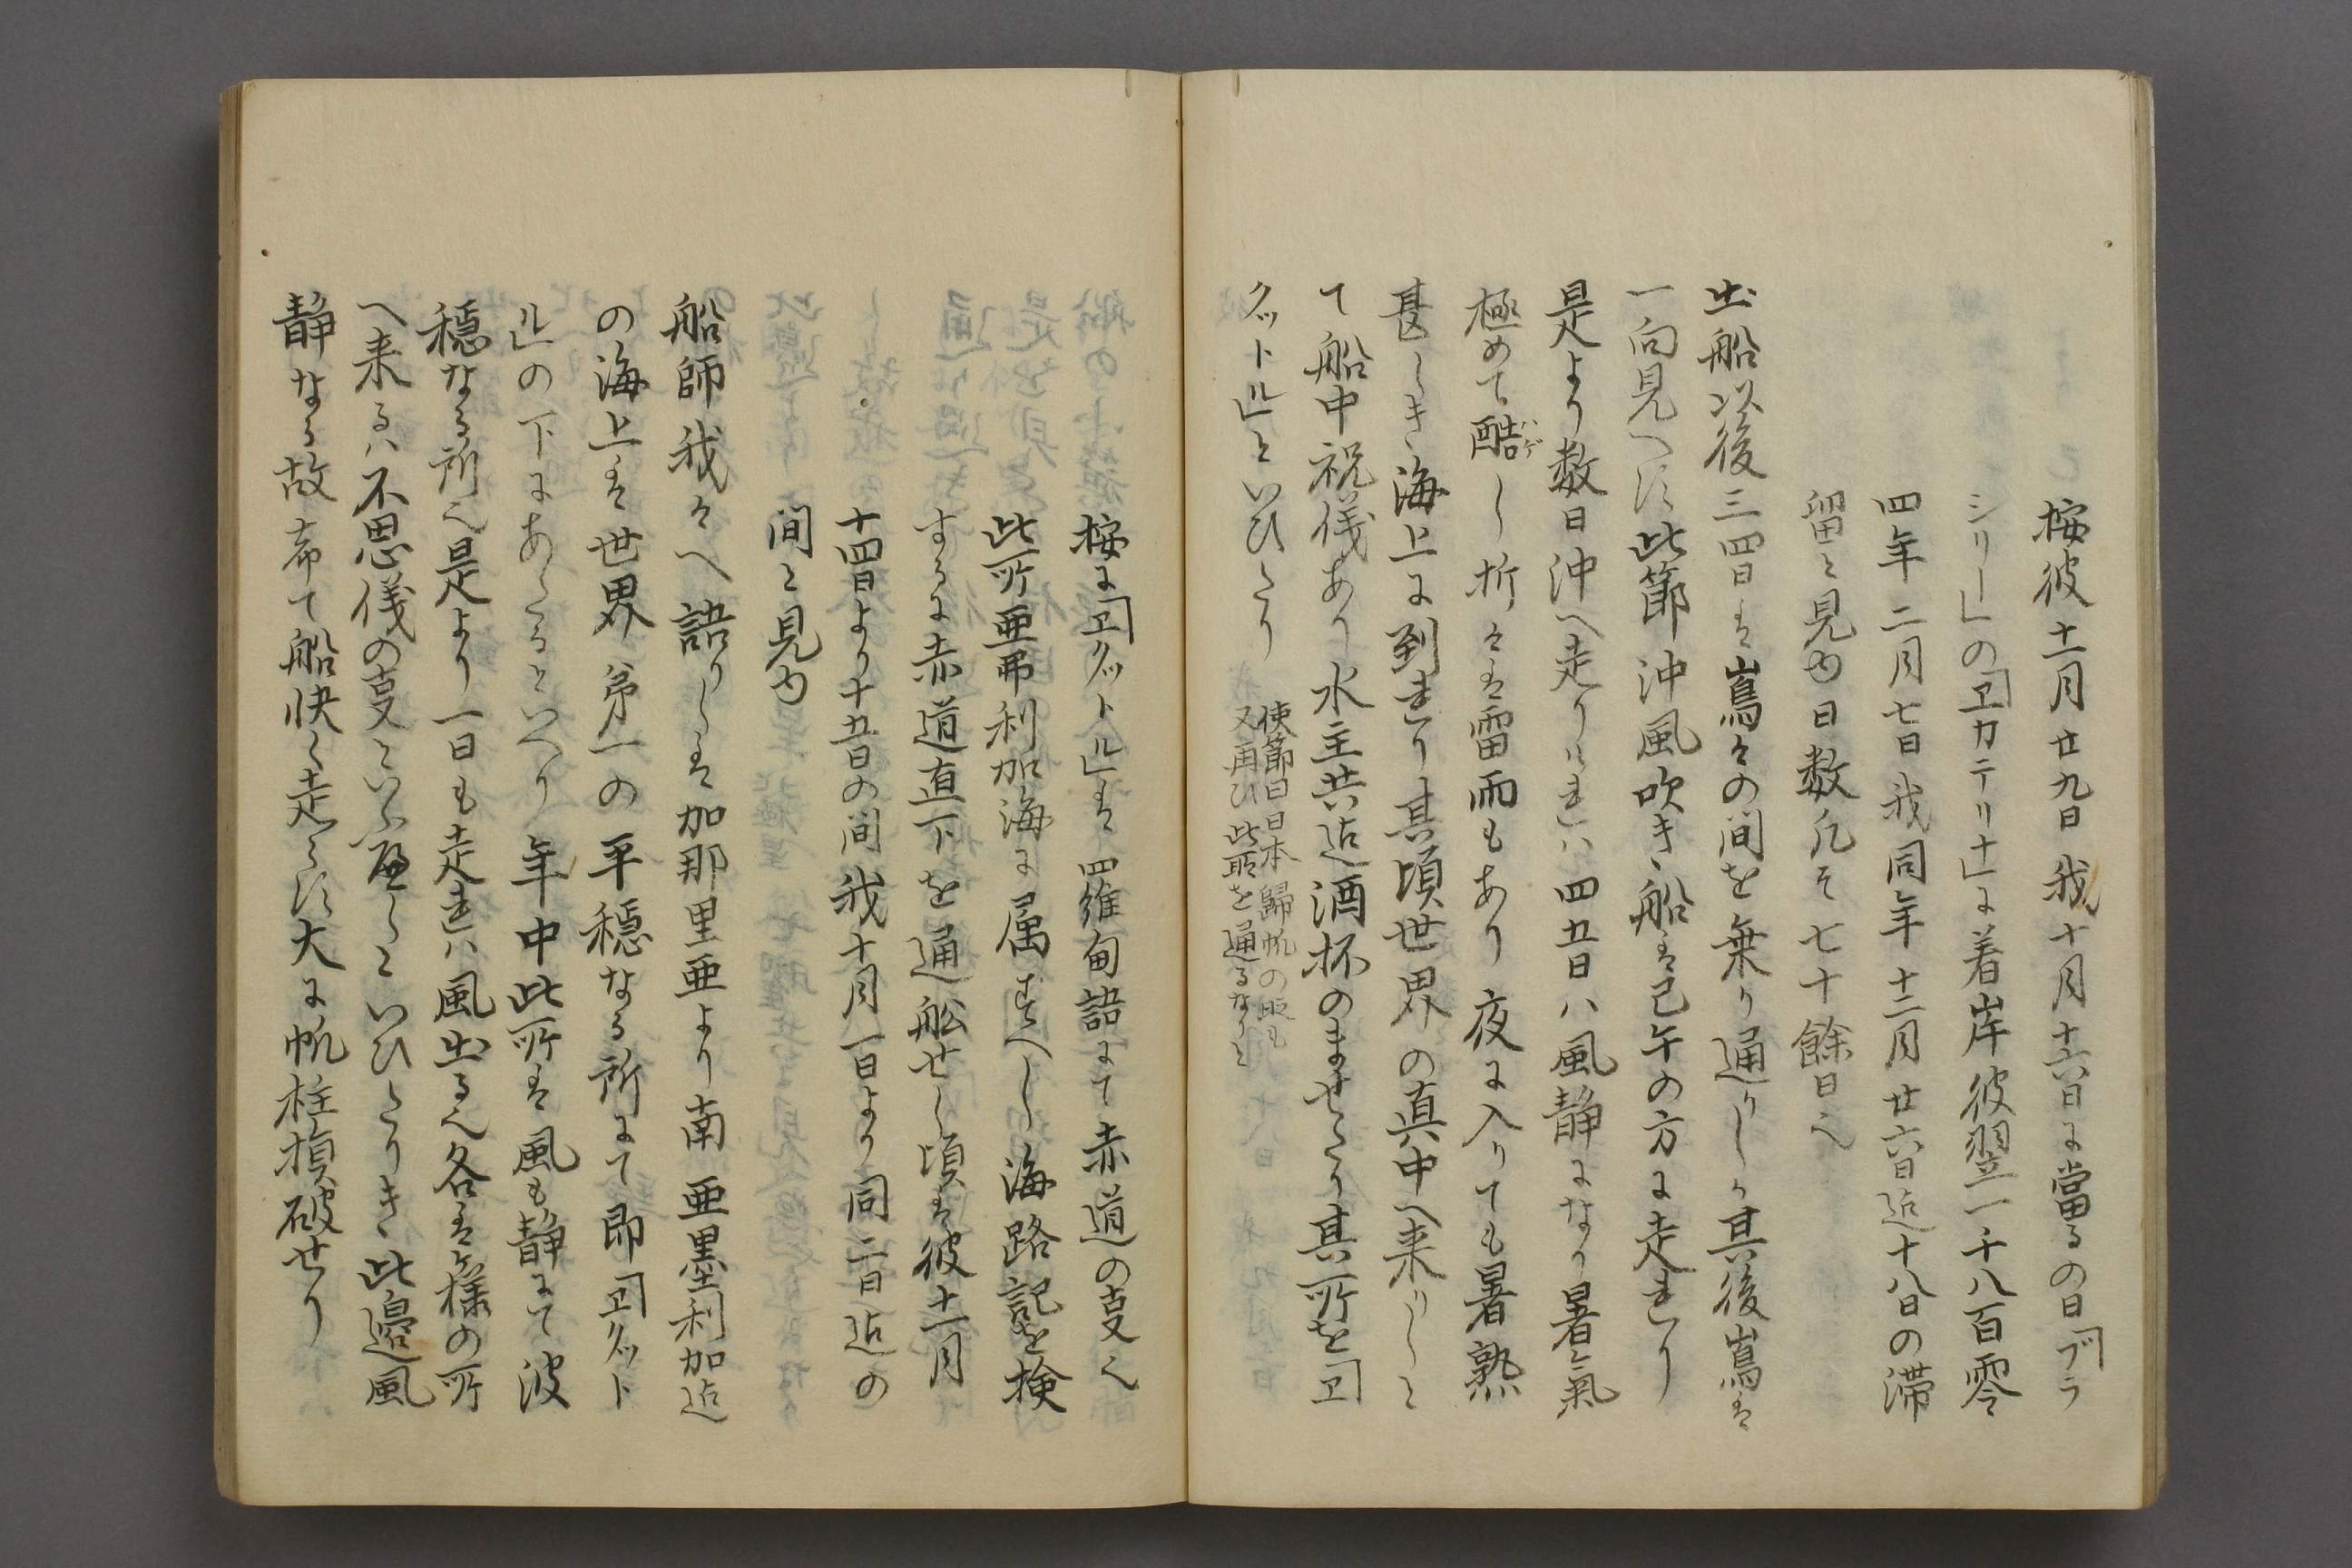 按彼十一月廿九日我十月十六日に當るの日「ブラ
シリー」の「ヱカテリナ」に着岸彼翌一千八百零
四年二月七日我同年十二月廿六日迄十八日の滞
留と見ゆ日数凡そ七十餘日也
出船以後三四日は嶌々の間を乗り通りしか其後嶌は
一向見へす此節沖風吹き船は巳午の方に走れり
是より数日沖へ走りけれハ四五日ハ風静になり暑氣
極めて酷し折々は雷雨もあり夜に入りても暑熟
ハゲ
甚しき海上に到れり其頃世界の真中へ来りしと
て船中祝儀あり水主共迄酒杯のませたり其所を「ヱ
クットル」といひたり
使節曰日本歸帆の時も
又再ひ此所を通るなりと
按に「ヱクットル」は四羅甸語にて赤道の叓也
此所亜弗利加海に属すへし海路記を検
するに赤道直下を通舩せし頃は彼十一月
十四日より十五日の間我十月一日より同二日迄の
間と見ゆ
船師我々へ語りしは加那里亜より南亜墨利加迄
の海上は世界第一の平穏なる所にて即「ヱクット
ル」の下にあたるといへり年中此所は風も静にて波
穏なる所也是より一日も走れハ風出る也各は今様の所
へ来るハ不思儀の叓といふ可しといひたりき此邉風
静なる故希て船快く走らす大に帆柱損破せり